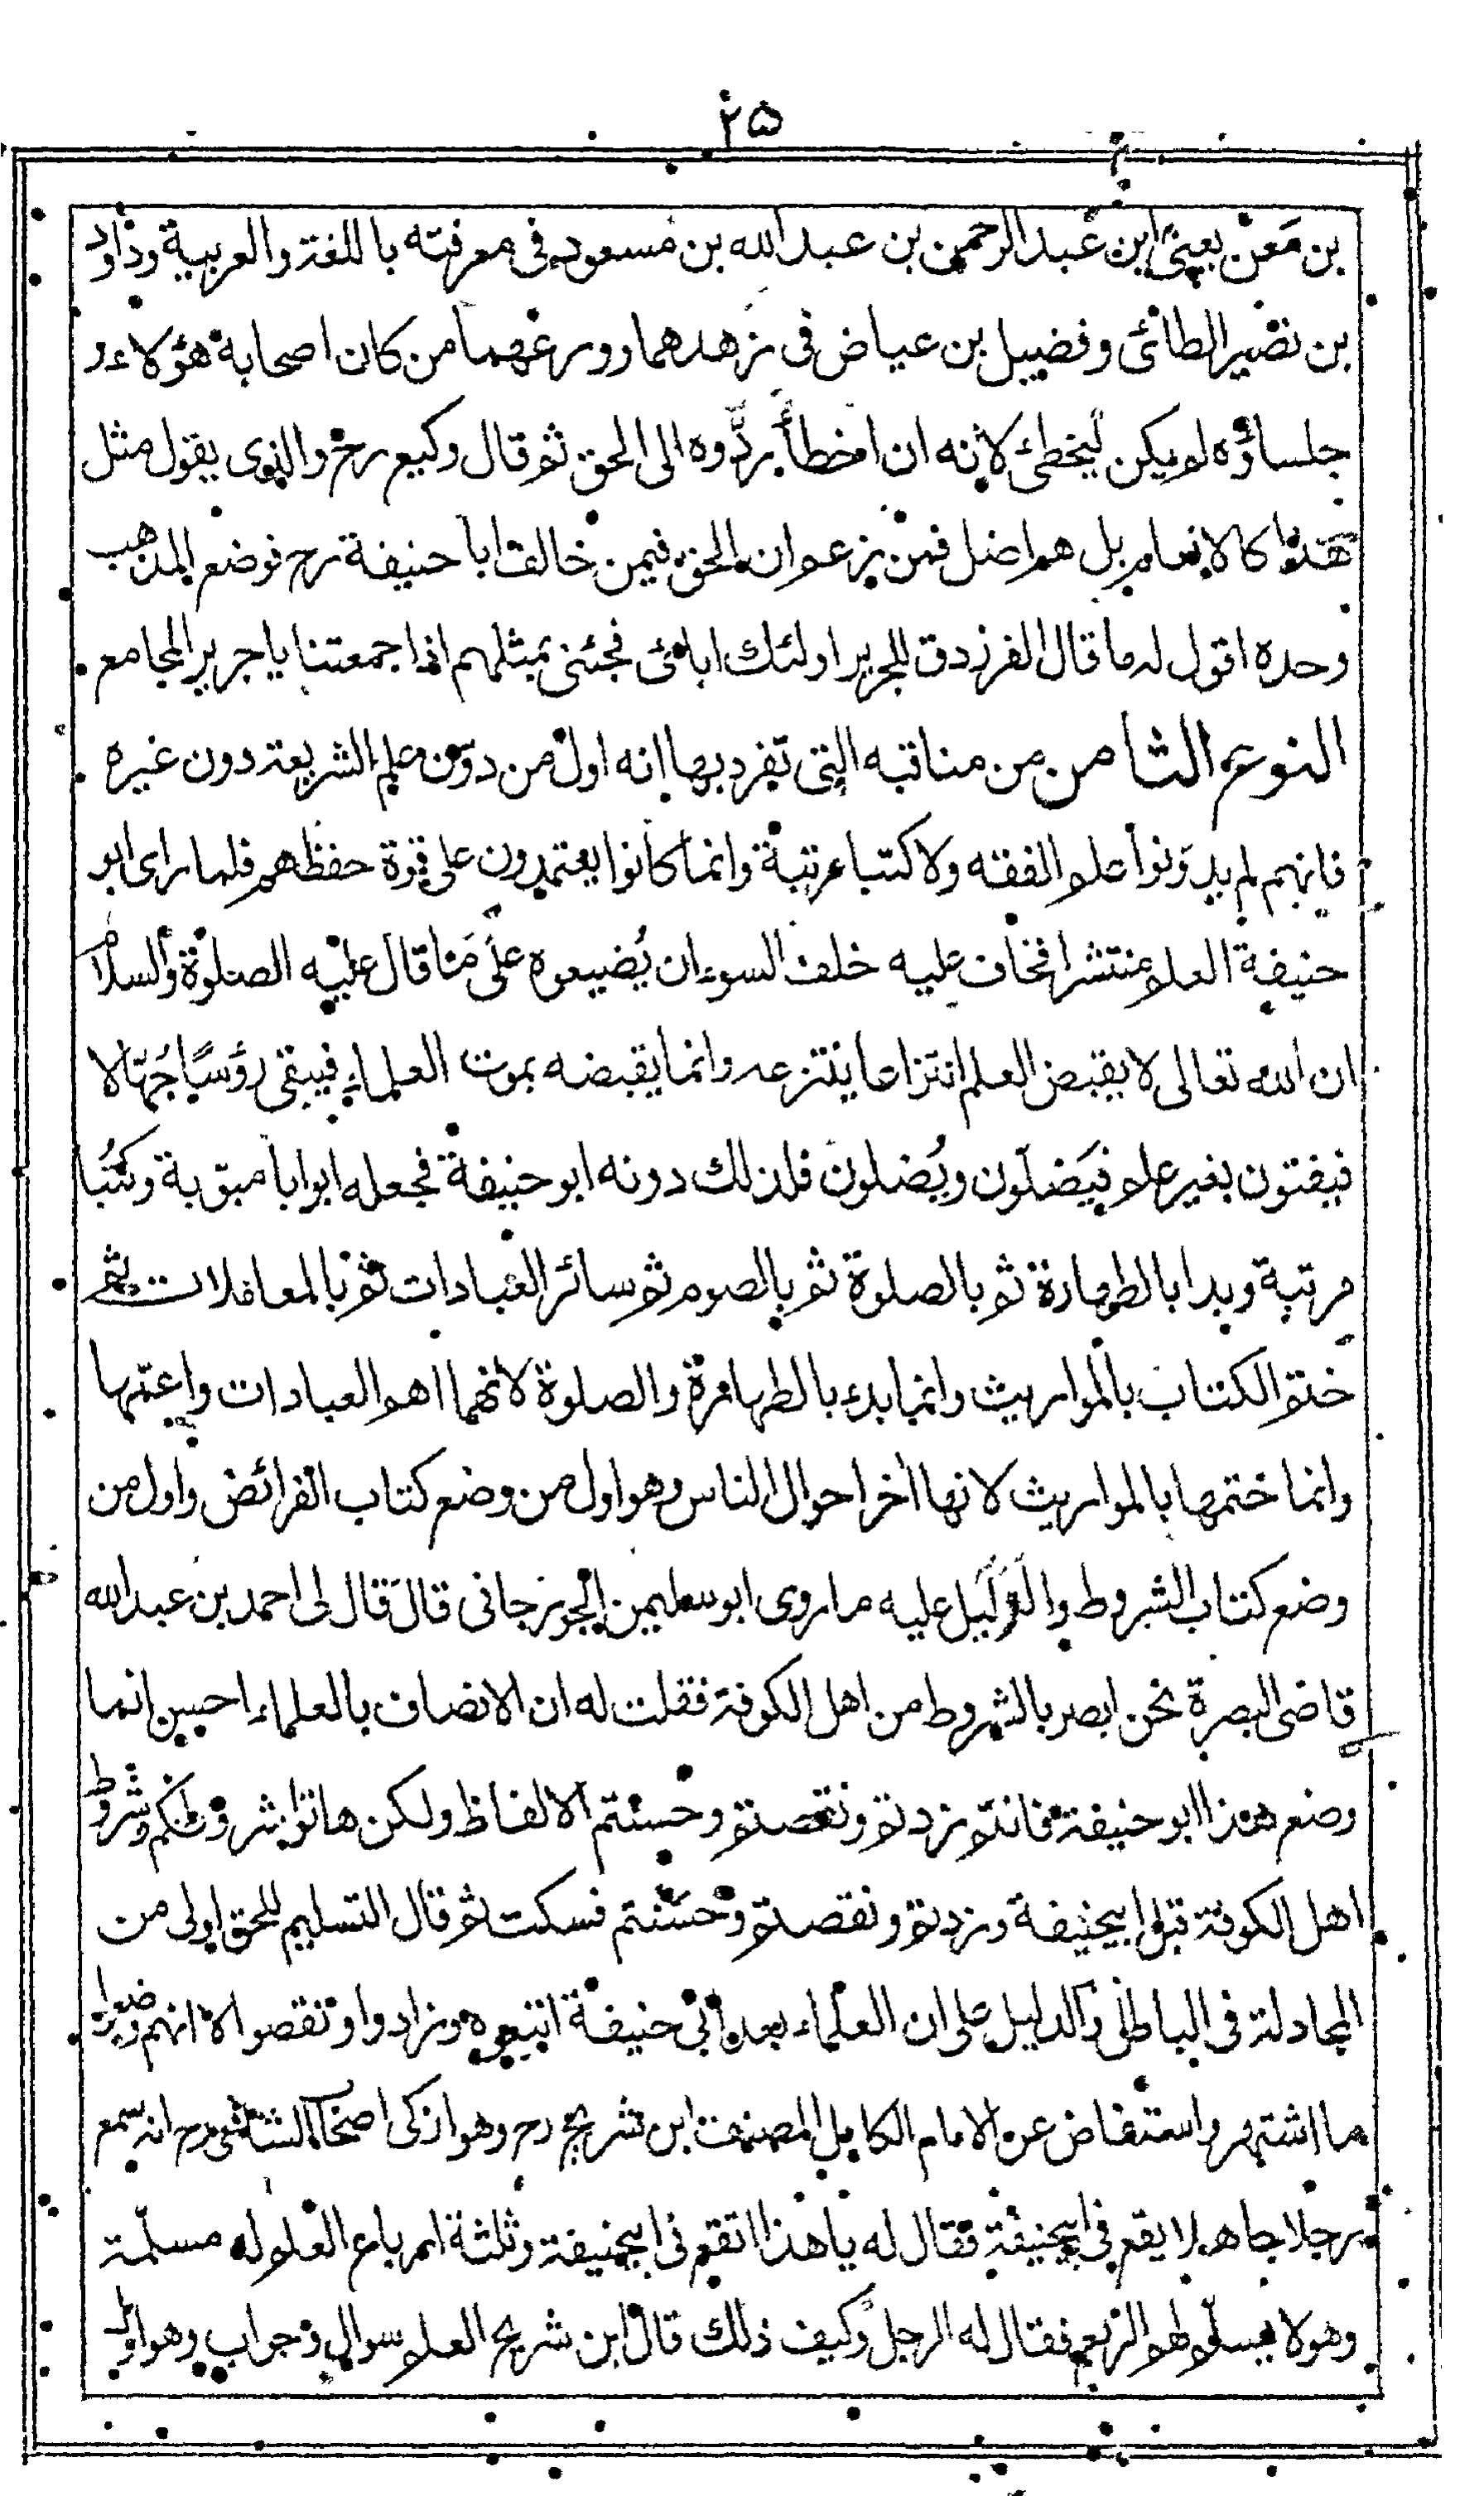 ۲۵
بن مَعن يعنى ابن عبد الرحمن بن عبد الله بن مسعود فى معرفته باللغة والعربية وداود
بن نضير الطائى وفضيل بن عياض فى زهدهما وورعهما من كان اصحابة هؤلاء و
جلساؤه لم يكن ليخطئ لانه ان اخطأ ردّوه الى الحق ثم قال وكيع رح والذى يقول مثل
هذا كالانعام بل هم اضل فمن يزعم ان الحق فيمن خالف ابا حنيفة رح فوضع المذهب
وحده اقول له ما قال الفرزدق لجرير اولئك ابائى فجئنى بمثلهم اذا جمعتنا يا جرير المجامع
النوع الثامن من مناقبه التى تفرد بها انه اول من دوّن علم الشريعة دون غيره
فانهم لم يدونوا علم الفقه ولا كتبا مرتبة وانما كانوا يعتمدون على قوة حفظهم فلما راى ابو
حنيفة العلم منتشرا فخاف عليه خلف السوء ان يُضيعوه على ما قال عليه الصلوة والسلام
ان الله تعالى لا يقبض العلم انتزاعا ينتزعه وانما يقبضه بموت العلماء فيبقى رؤسًا جُهّالا
فيفتون بغير علم فيَضلّون ويُضلون فلذلك دونه ابو حنيفة فجعله ابوابا مبوبة وكُتُبا
مرتبة وبدا بالطهارة ثم بالصلوة ثم بالصوم ثم سائر العبادات ثم بالمعاملات ثم
ختم الكتاب بالمواريث وانما بدء بالطهارة والصلوة لانهما اهم العبادات واعمّها
وانما ختمها بالمواريث لانها اخر احوال الناس وهو اول من وضع كتاب الفرائض واول من
وضع كتاب الشروط والدَّليل عليه ما روى ابو سليمن الجوزجانى قال قال لى احمد بن عبد الله
قاضى البصرة نحن ابصر بالشروط من اهل الكوفة فقلت له ان الانصاف بالعلماء احسن انما
وضع هذا ابو حنيفة فانتم زدتم ونقصتم وحسنتم الالفاظ ولكن هاتوا شروطكم وشروط
اهل الكوفة قبل ابيحنيفة وزدتم ونقصتم وحَسّنتم فسكت ثم قال التسليم للحق اولى من
المجادلة فى الباطل والدليل على ان العلماء بعد ابى حنيفة اتبعوه وزادوا ونقصوا الا انهم وضوا
ما اشتهر واستفاض عن الامام الكامل المصنف ابن شريح رح وهو ازكى اصحاب الشافعى رح انه سمع
رجلا جاهلا يقع فى ابيحنيفة فقال له يا هذا اتقع فى ابيحنيفة وثلثة ارباع العلم له مسلمة
وهو لا يسلّم لهم الربع فقال له الرجل وكيف ذلك قال ابن شريح العلم سوال وجواب وهو اول